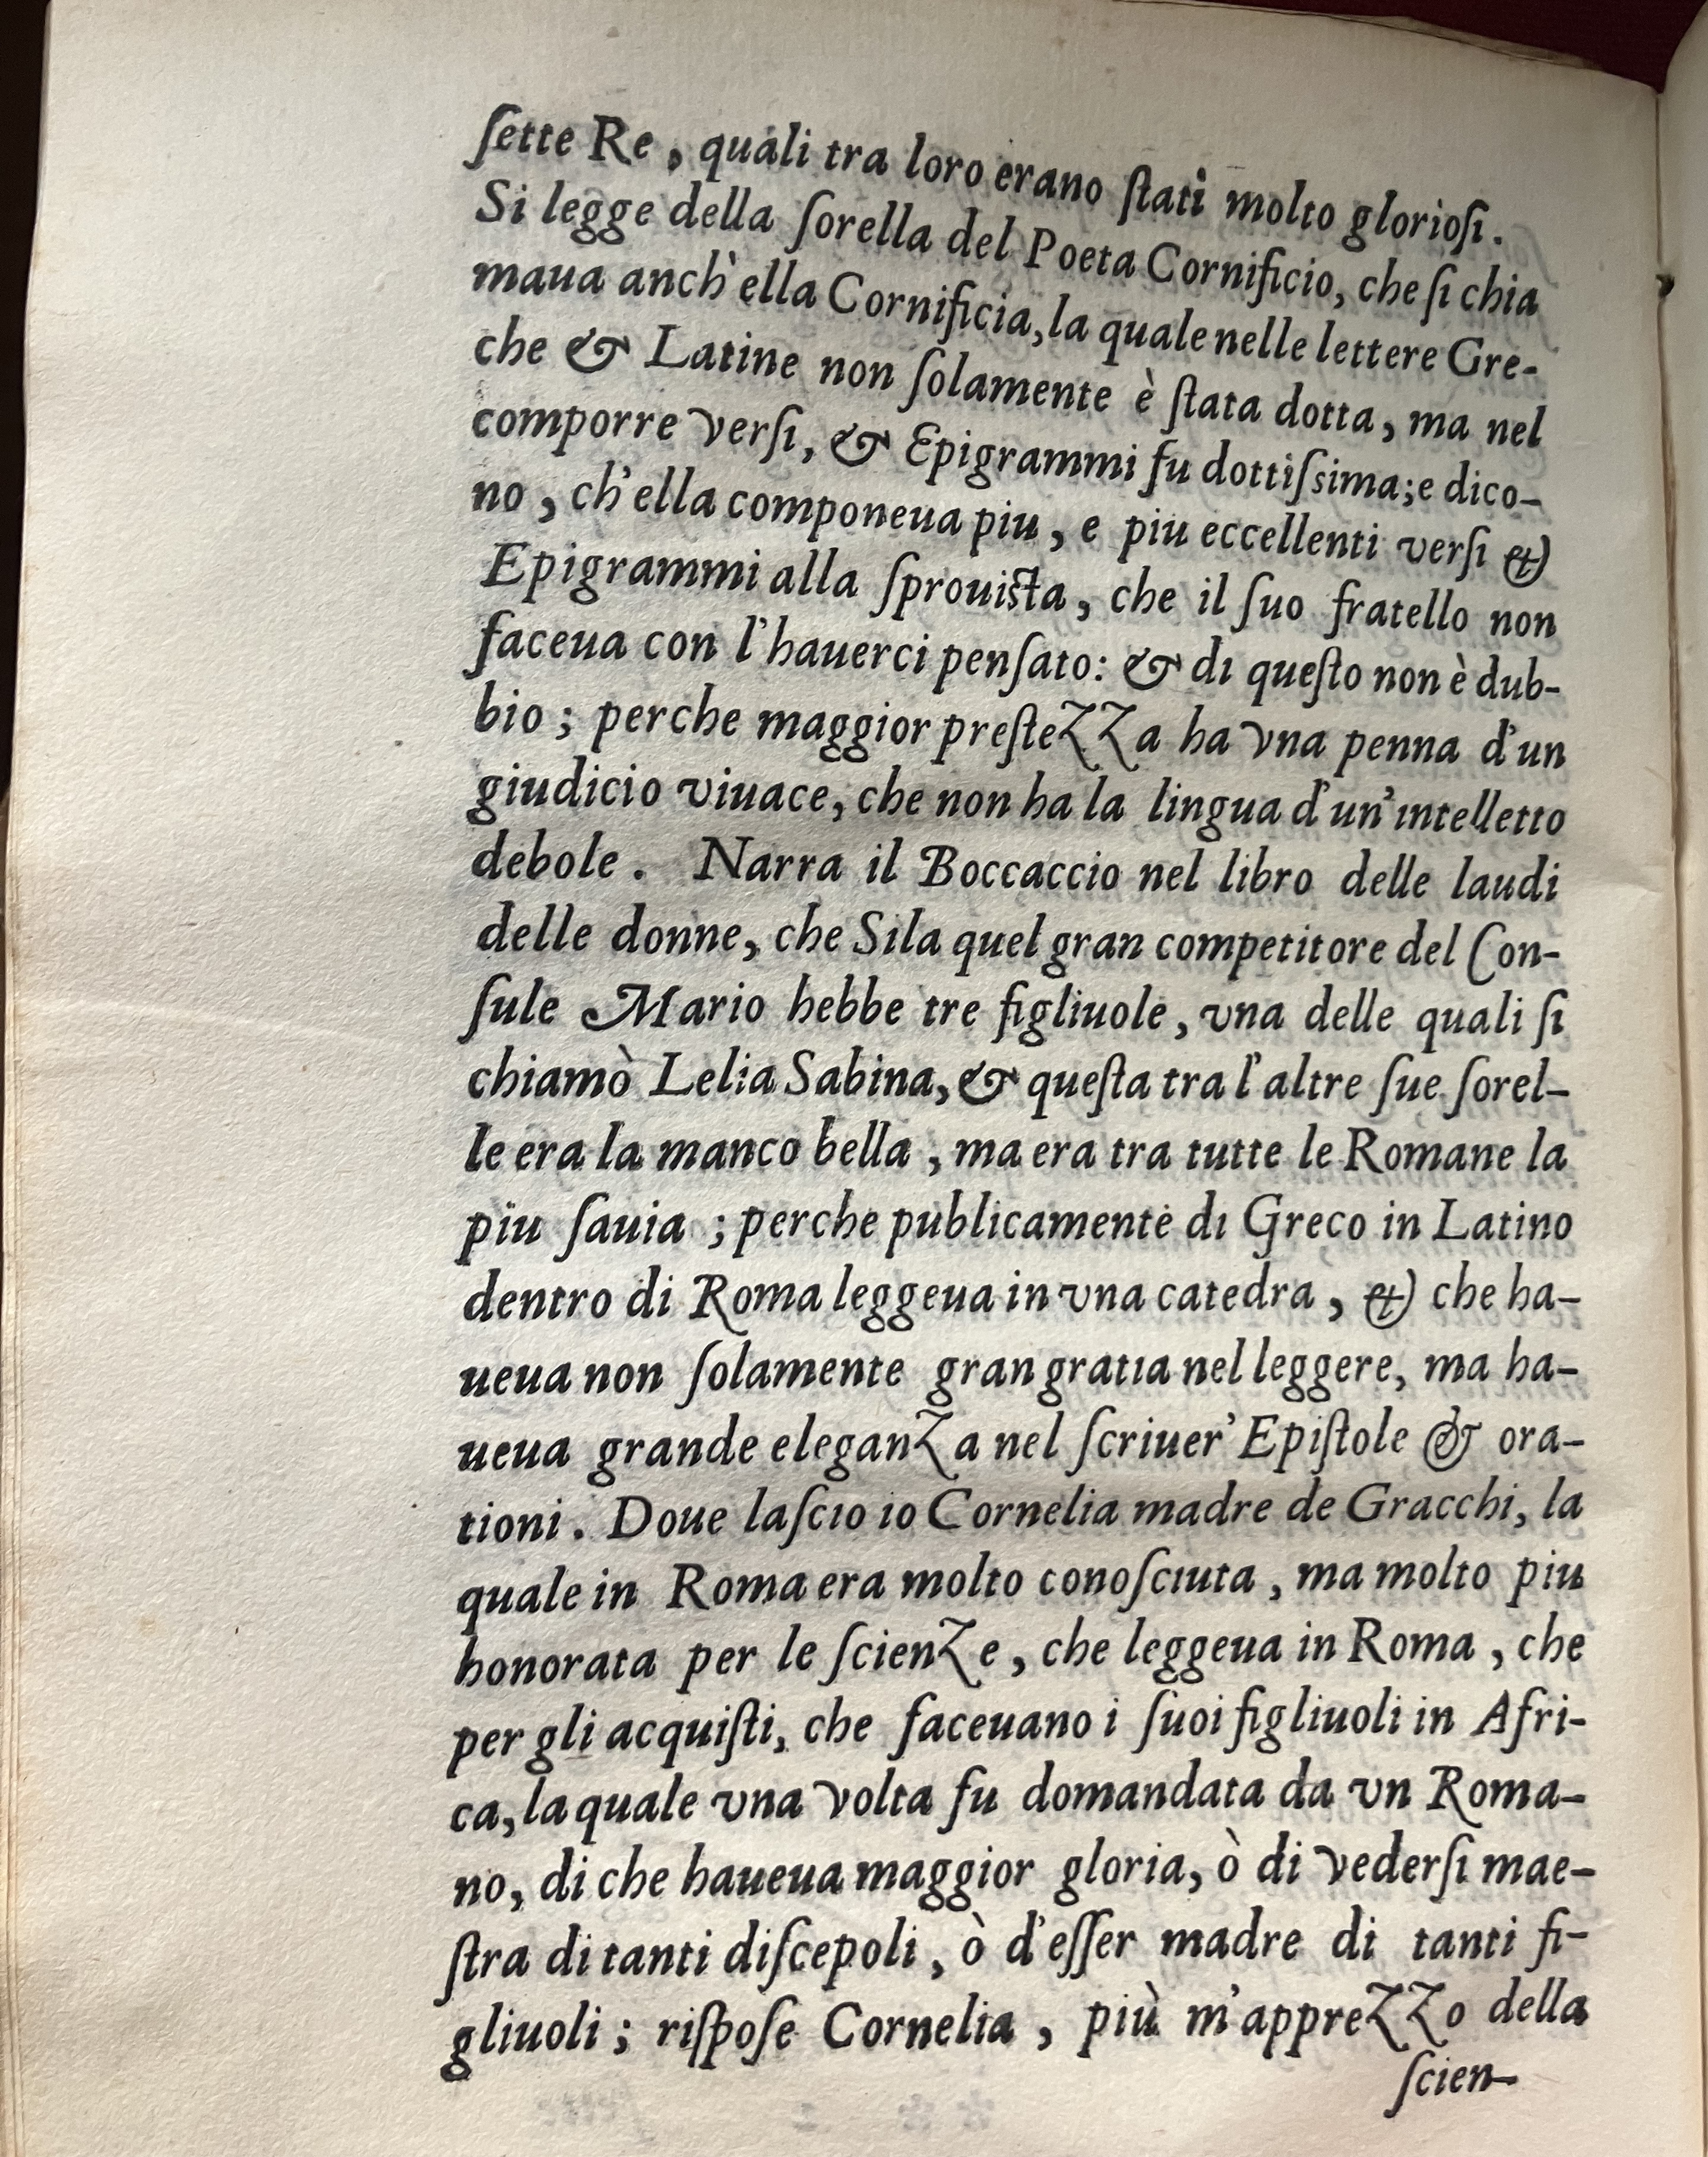 ſette Re, quali tra loro erano ſtati molto glorioſi.
Si legge della ſorella del Poeta Cornificio, che ſi chia
maua anch'ella Cornificia, la quale nelle lettere Gre-
che & Latine non ſolamente è ſtata dotta, ma nel
comporre verſi, & Epigrammi fu dottiſsima; e dico-
no, ch'ella componeua piu, e piu eccellenti verſi &
Epigrammi alla ſprouiſta, che il ſuo fratello non
faceua con l'hauerci penſato: & di queſto non è dub-
bio; perche maggior preſtezza ha vna penna d'un
giudicio viuace, che non ha la lingua d'un'intelletto
debole. Narra il Boccaccio nel libro delle laudi
delle donne, che Sila quel gran competitore del Con-
ſule Mario hebbe tre figliuole, vna delle quali ſi
chiamò Lelia Sabina, & queſta tra l'altre ſue ſorel-
le era la manco bella, ma era tra tutte le Romane la
piu ſauia; perche publicamente di Greco in Latino
dentro di Roma leggeua in vna catedra, & che ha-
ueua non ſolamente gran gratia nel leggere, ma ha-
ueua grande eleganza nel ſcriuer' Epiſtole & ora-
tioni. Doue laſcio io Cornelia madre de Gracchi, la
quale in Roma era molto conoſciuta, ma molto piu
honorata per le ſcienze, che leggeua in Roma, che
per gli acquiſti, che faceuano i ſuoi figliuoli in Afri-
ca, la quale vna volta fu domandata da vn Roma-
no, di che haueua maggior gloria, ò di vederſi mae-
ſtra di tanti diſcepoli, ò d'eſſer madre di tanti fi-
gliuoli; riſpoſe Cornelia, più m'apprezzo della
ſcien-